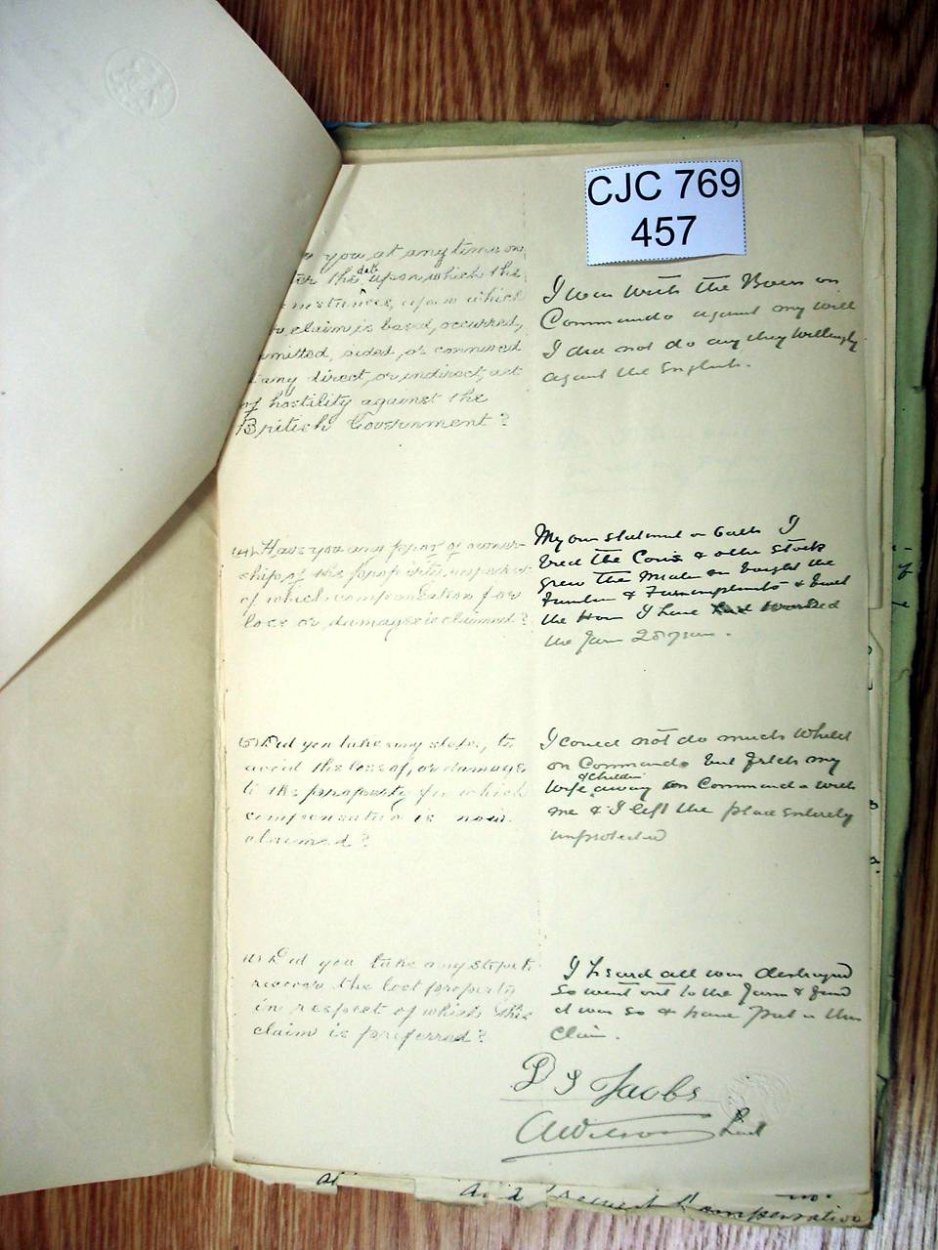 CJC 769
457
you, at any time on
the date upon which the
upon which
claim is based, occurred,
aided, or connived
any direct, or indirect, act
of hostility against the
British Government?
I was with the Boers on
Commando against my will
I did not do any thing willingly
against the English.
(4) Have you any proof of owner-
ship of the property in respect
of which compensation for
loss or damage is claimed?
My own statement on oath I
bred the Cows & other stock
grew the Mealies bought the
Furniture & Farm implements & built
the House I have worked
the farm 28 years.
(5) Did you take any steps, to
avoid the loss of, or damage
to the property for which
compensation is now
claimed?
I could not do much whilst
on Commando but my
& children
wife away on Commando with
me & I left the place entirely
unprotected
Did you take any steps to
recover the lost property
in respect of which this
claim is preferred?
I heard all was destroyed
so went out to the farm & found
it was so & have put in this
Claim.
Jacobs
A Wilson Lieut
Compensation